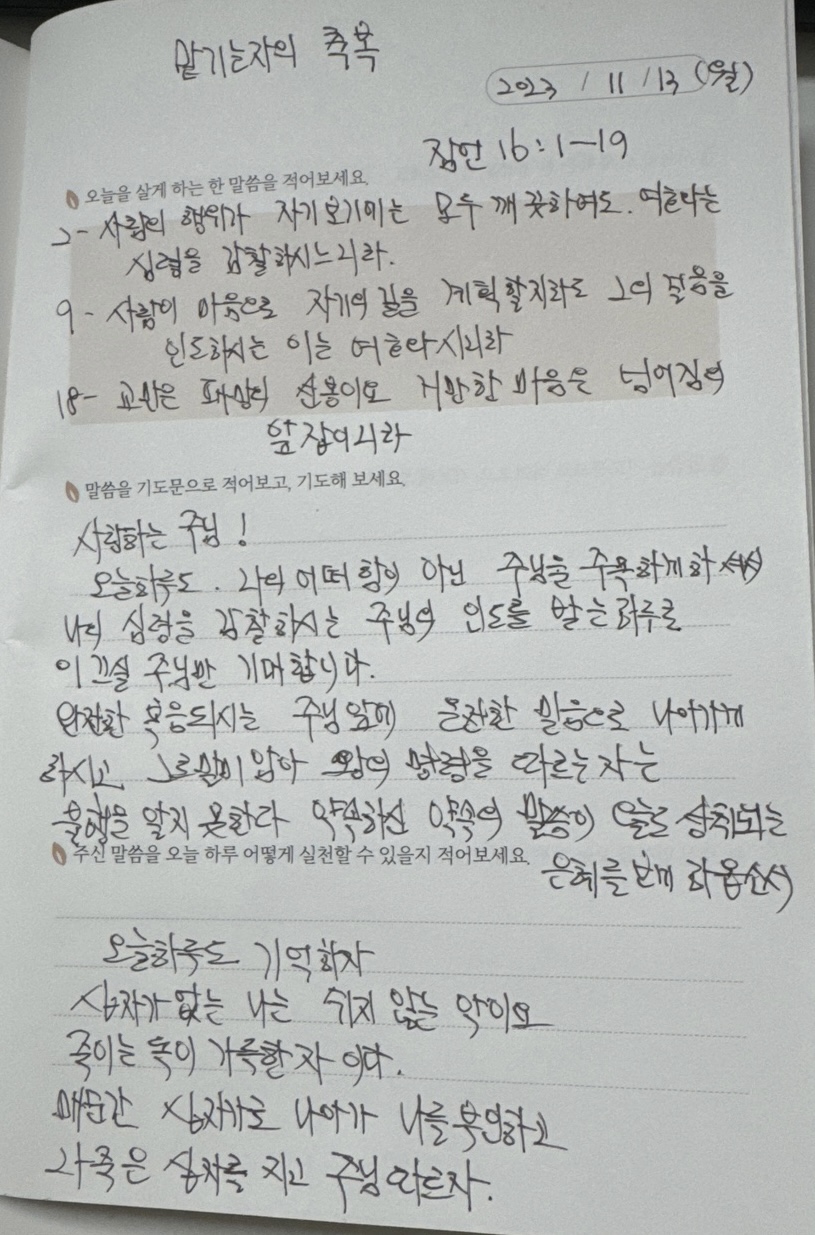 맡기는자의 축복
2023 / 11 / 13 (월)
잠언 16 : 1-19
오늘을 살게 하는 한 말씀을 적어보세요.
2- 사람의 행위가 자기 보기에는 모두 깨끗하여도. 여호와는
심령을 감찰하시느니라.
9 - 사람이 마음으로 자기의 길을 계획할지라도 그의 걸음을
인도하시는 이는 여호와시니라
18- 교만은 패망의 선봉이요 거만한 마음은 넘어짐의
앞잡이니라
말씀을 기도문으로 적어보고, 기도해 보세요.
사랑하는 주님 !
오늘하루도. 나의 어떠함이 아닌 주님을 주목하게하
나의 심령을 감찰하시는 주님의 인도를 받는하루로
이끄실 주님만 기대합니다.
완전한 복음되시는 주님앞에 온전한 믿음으로 나아가게
하시고 그로말미암아 왕의 명령을 따르는자는
불행을 알지 못한다 약속하신 약속의 말씀이 오늘도 성취되는
은혜를 보게 하옵소서
주신 말씀을 오늘 하루 어떻게 실천할 수 있을지 적어보세요.
오늘하루도 기억하자
십자가 없는 나는 쉬지 않는 악이요
죽이는 독이 가득한자 이다.
매순간 십자가로 나아가 나를부인하고
나죽은 십자를 지고 주님따르자.